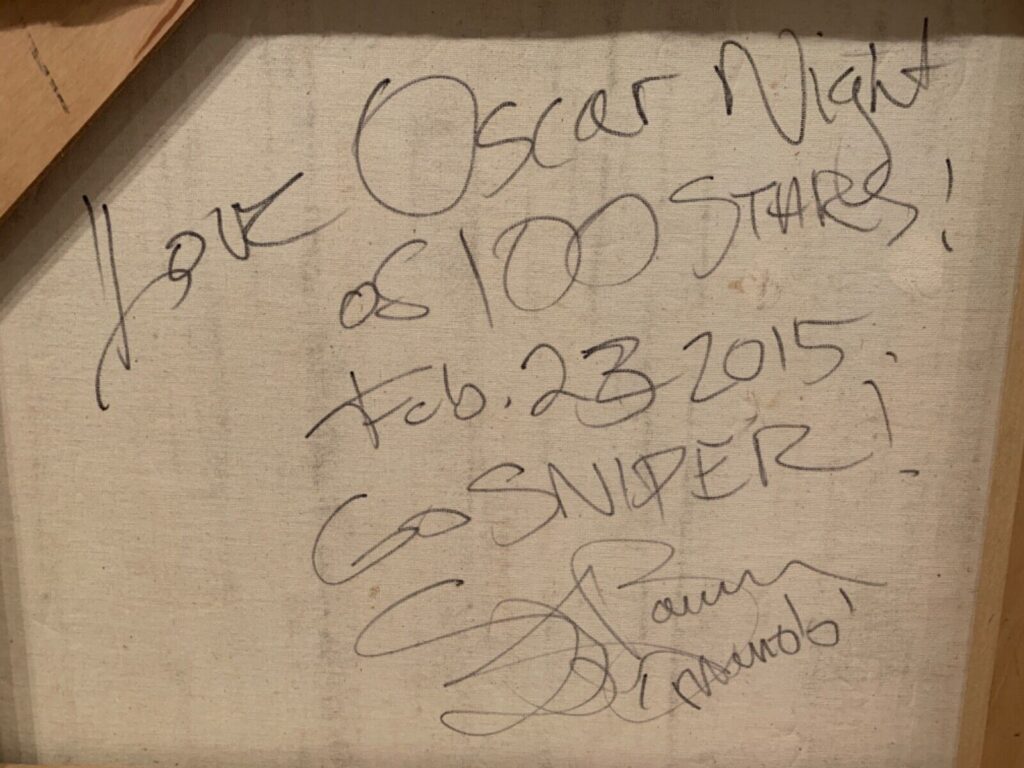 Love Oscar Night
as 100 STARS!
Feb. 23 2015.
Go SNIPER!